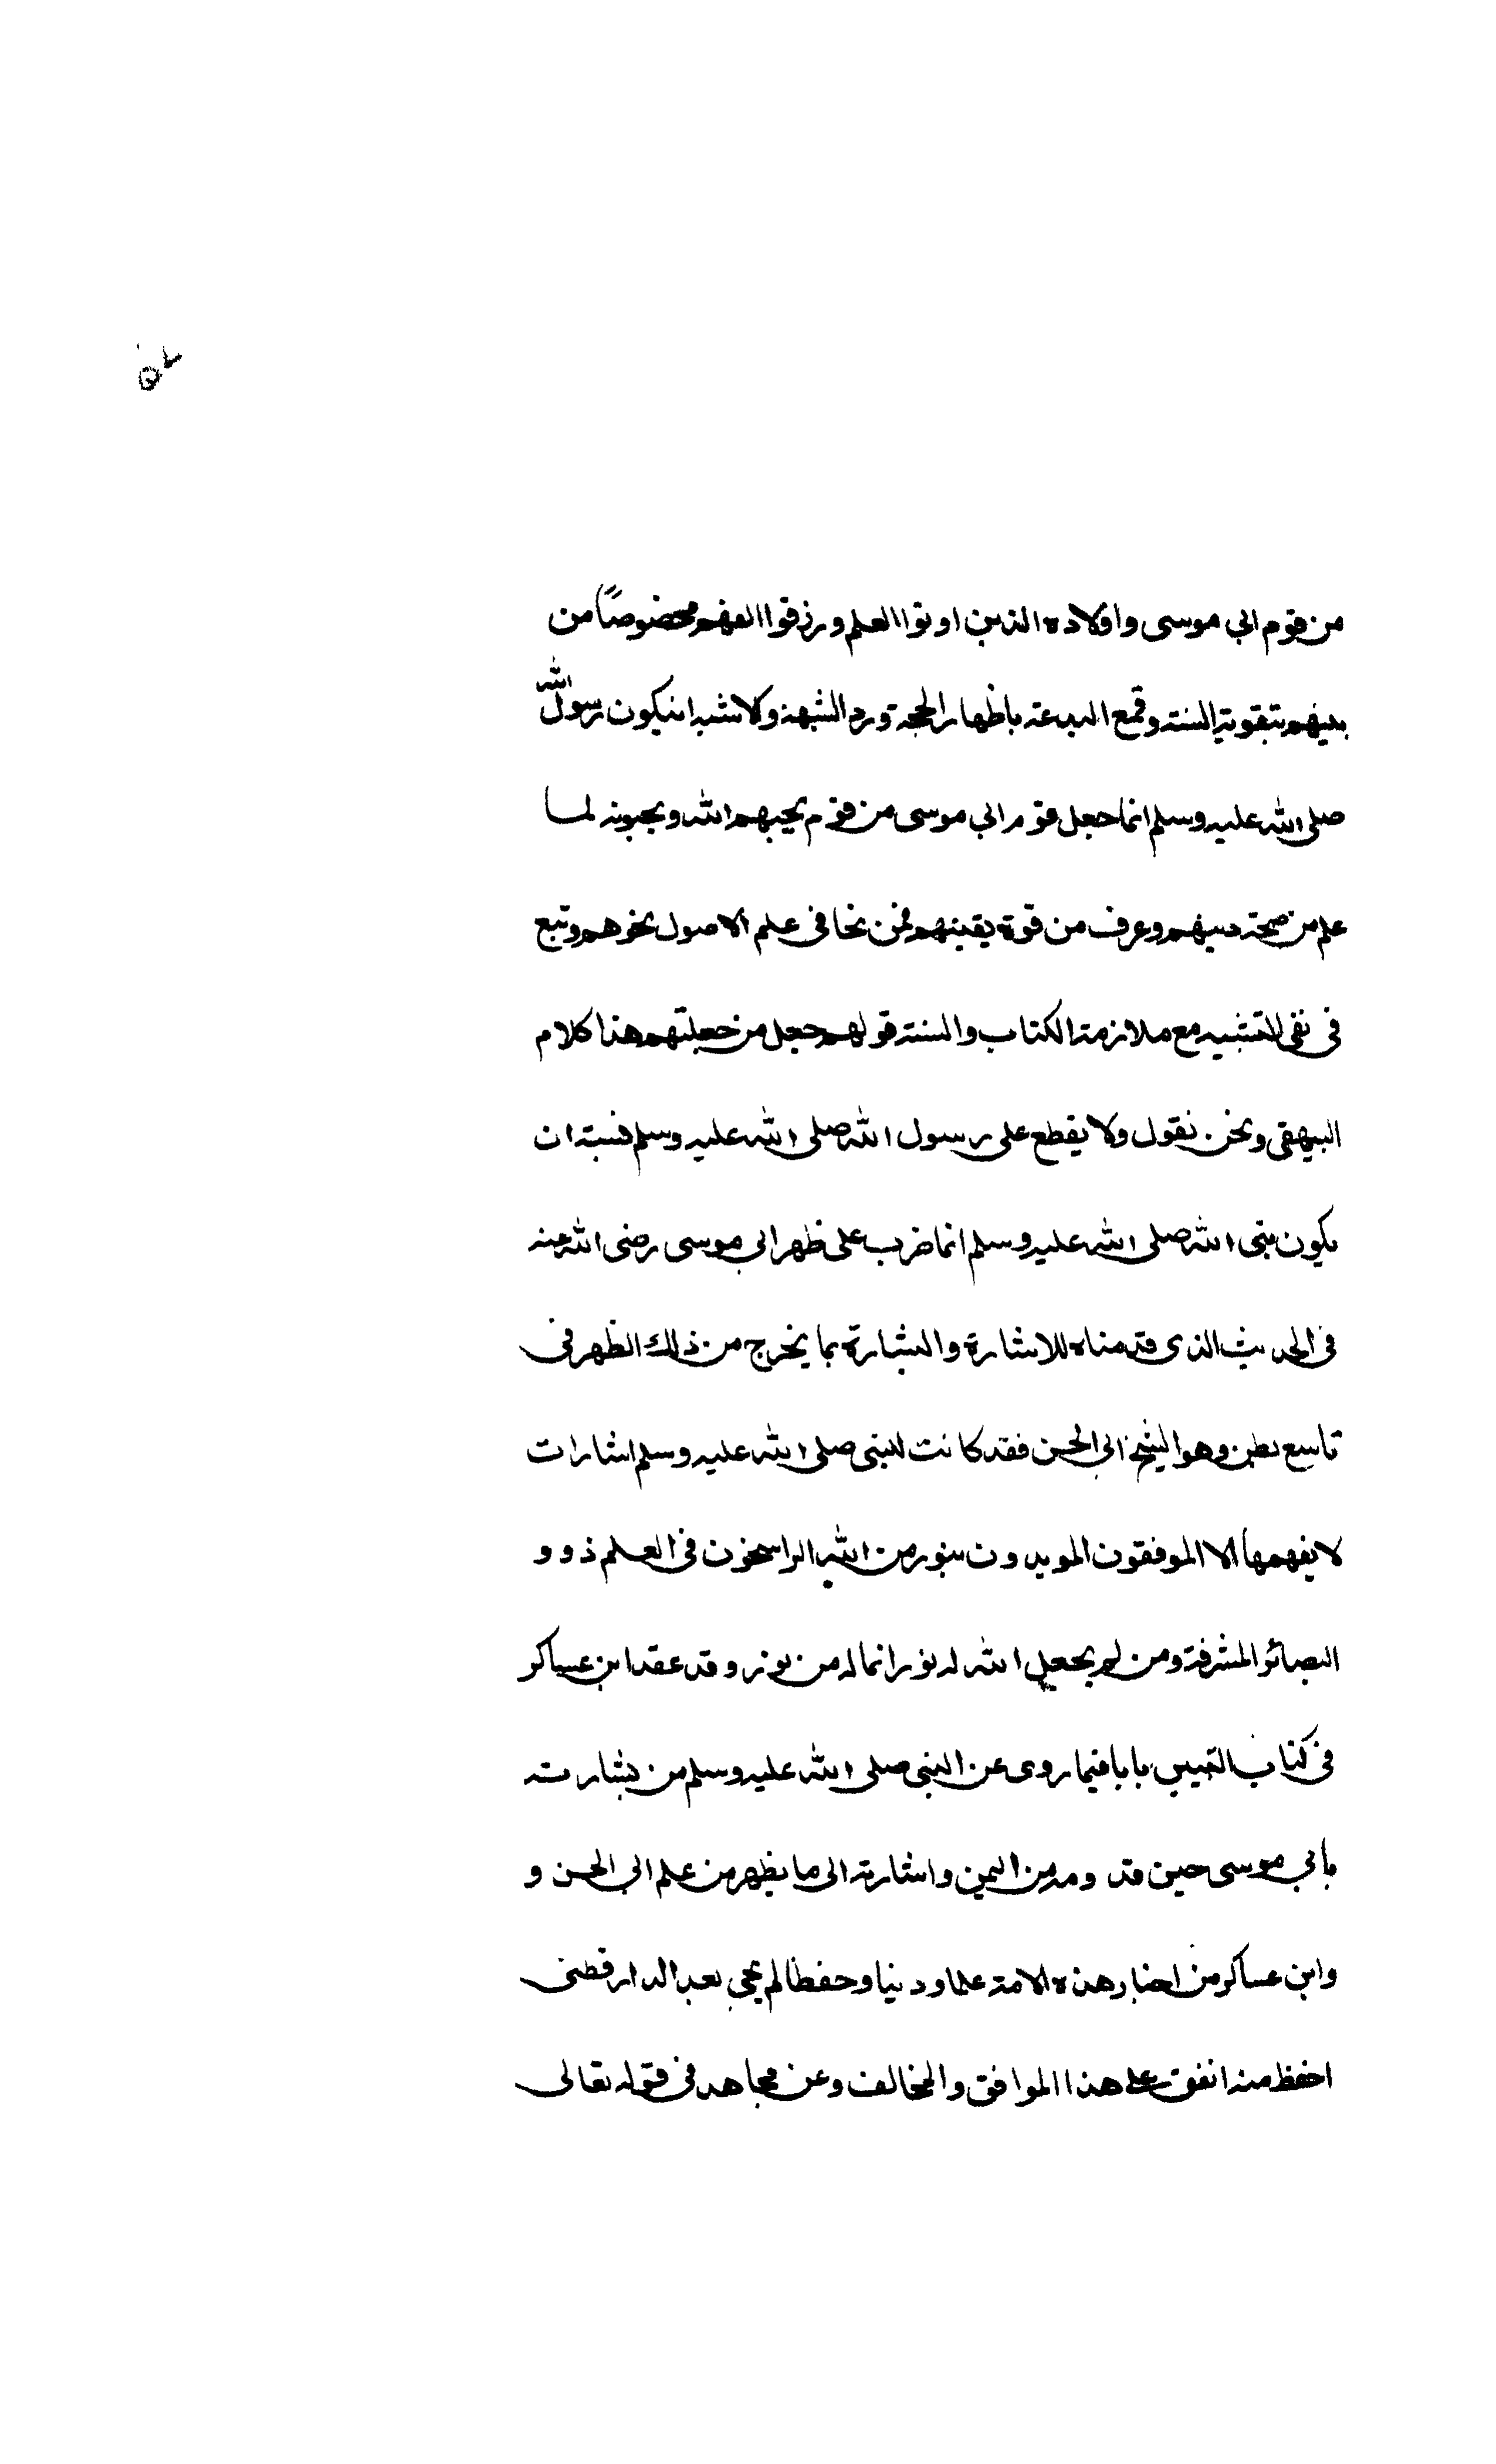 من قوم ابي موسى واولاده الذين اوتوا العلم ورزقوا الفهم مخصوصاً من
بينهم بتقوية السنة وقمع البدعة باظهار الحجة ورد الشبهة ولاشبه ان يكون رسول الله
صلى الله عليه وسلم انما جعل قوم ابي موسى من قوم يحبهم الله ويحبونه لما
علم من صحة دينهم وعرف من قوة يقينهم فمن نحا في علم الاصول نحوهم وتبع
في نفي التشبيه مع ملازمة الكتاب والسنة قولهم جعل من جملتهم هذا كلام
البيهقي ونحن نقول ولا يقطع على رسول الله صلى الله عليه وسلم فنسبة ان
يكون نبي الله صلى الله عليه وسلم انما ضرب على ظهر ابي موسى رضي الله عنه
في الحديث الذي قدمناه للاشارة والبشارة بما يخرج من ذلك الظهر في
تاسع بطن وهو الشيخ ابي الحسن فقد كانت للنبي صلى الله عليه وسلم اشارات
لا يفهمها الا الموفقون المويدون بنور من الله الراسخون في العلم ذوو
البصائر المشرفة ومن لم يجعل الله له نورا فماله من نور وقد عقد ابن عساكر
في كتاب التبيين بابا فيما روى عن النبي صلى الله عليه وسلم من بشارته
بابي موسى حين قدومه من اليمن واشارته الى ما يظهر من علم ابي الحسن و
وابن عساكر من اخبار هذه الامة علما ودينا وحفظا لم يجي بعد الدارقطني
احفظ منه اتفق على هذا الموافق والمخالف وعن مجاهد في قوله تعالى